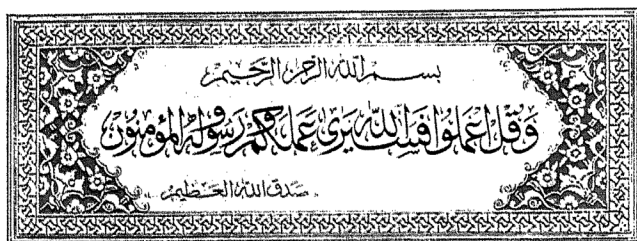 بسم الله الرحمن الرحيم
وَقُلِ اعْمَلُوا فَسَيَرَى اللَّهُ عَمَلَكُمْ وَرَسُولُهُ وَالْمُؤْمِنُونَ
صدق الله العظيم